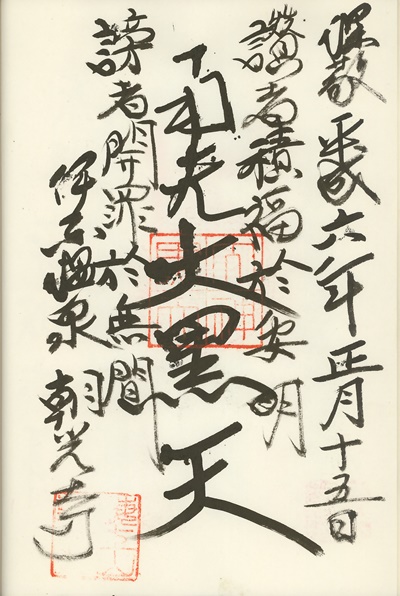 平成六年正月十五日
讃者積福於安明
南无大黒天
謗者開罪於無間
伊東温泉 朝光寺